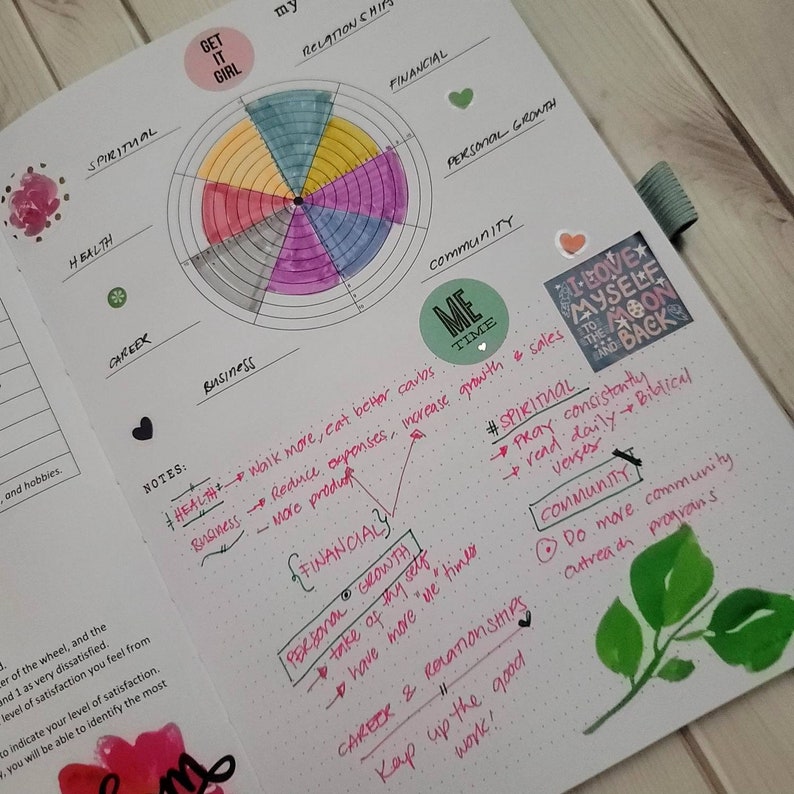 my
GET
IT
GIRL
RELATIONSHIPS
FINANCIAL
PERSONAL GROWTH
COMMUNITY
SPIRITUAL
HEALTH
CAREER
BUSINESS
ME
TIME
I LOVE
MYSELF
TO
THE MOON
AND BACK
NOTES:
HEALTH → Walk more, eat better carbs
BUSINESS → Reduce expenses, increase growth & sales
– More product
{FINANCIAL}
PERSONAL GROWTH
→ take of thy self
→ have more "Me" times
CAREER & RELATIONSHIPS
Keep up the good
work!
#SPIRITUAL
→ Pray consistently
→ read daily → Biblical
verses
COMMUNITY
Do more community
outreach programs
, and hobbies.
er of the wheel, and the
and 1 as very dissatisfied.
level of satisfaction you feel from
to indicate your level of satisfaction.
, you will be able to identify the most